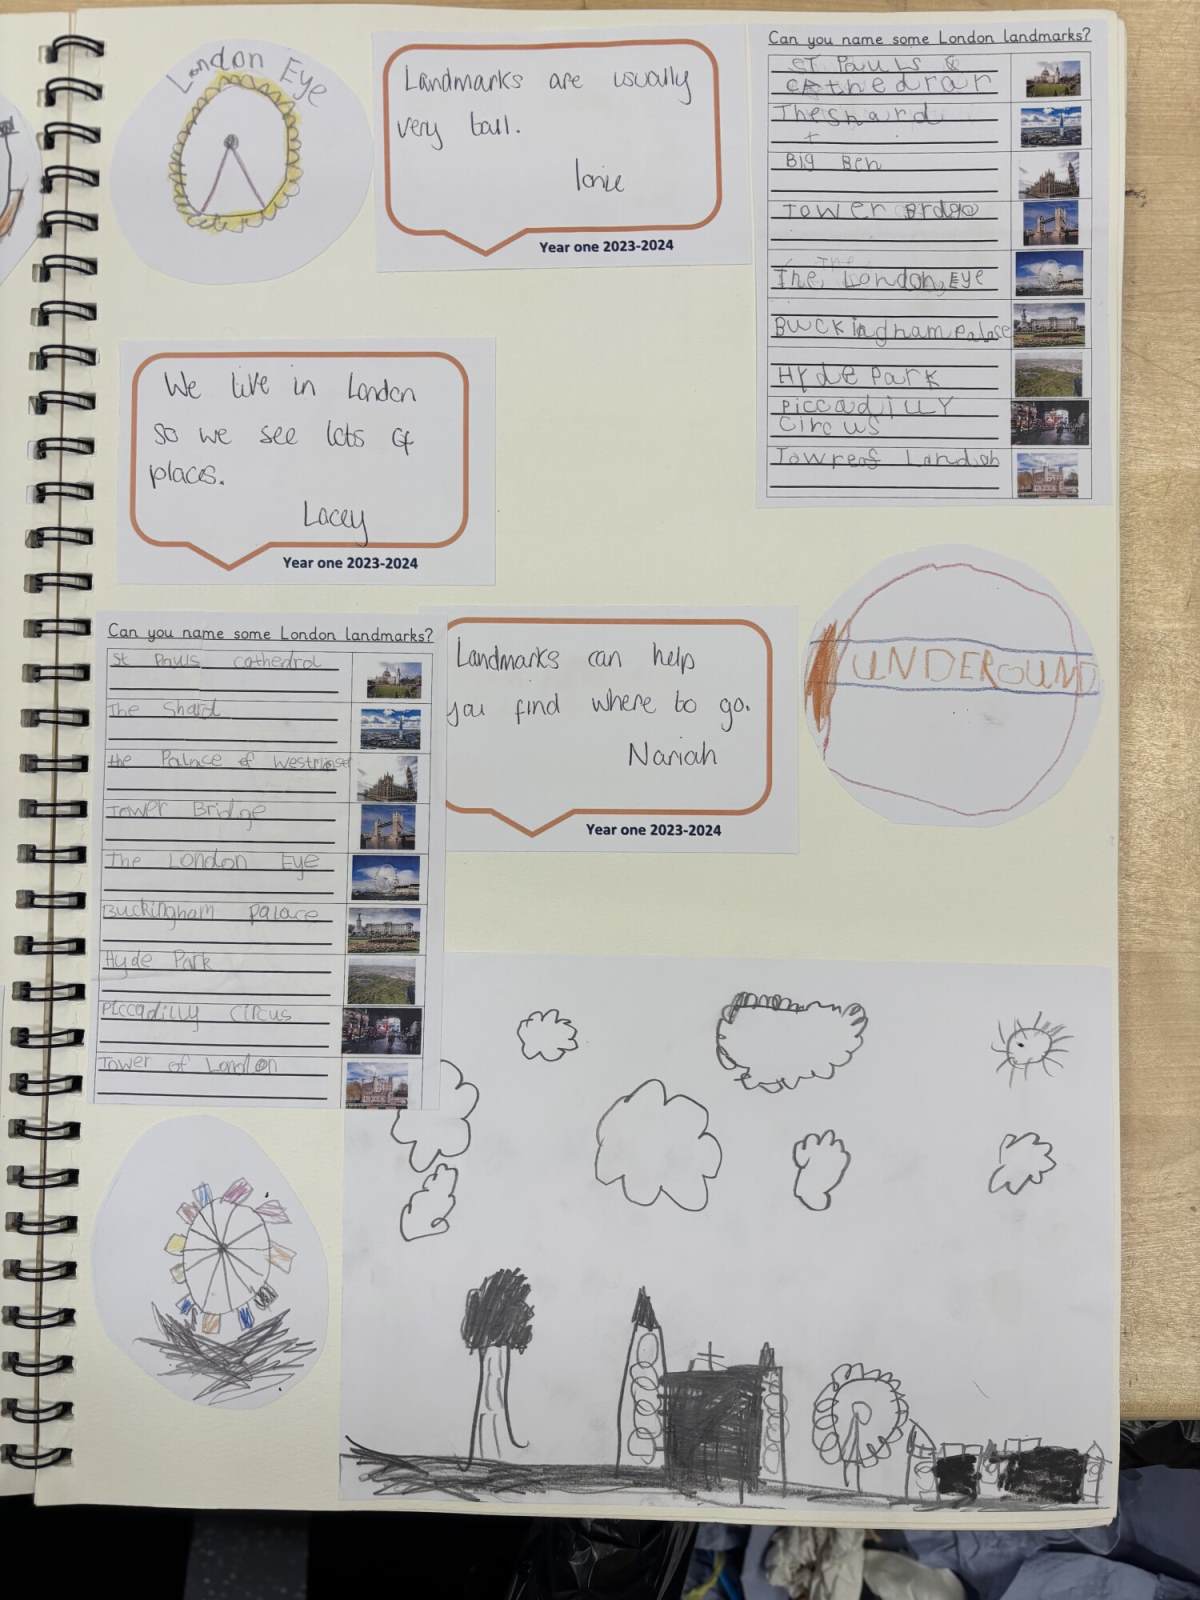 London Eye
Landmarks are usually
very tall.
Year one 2023-2024
Can you name some London landmarks?
ST Pauls
cathedrar
The shard
Big Ben
Tower
The London Eye
Buckingham Palase
Hyde Park
Piccadilly
circus
Towreof London
We live in London
so we see lots of
places.
Lacey
Year one 2023-2024
Can you name some London landmarks?
St Pauls cathedral
The Shard
the Palace of
Tower Bridge
The London Eye
Buckingham Palace
Hyde Park
Piccadilly circus
Tower of London
Landmarks can help
you find where to go.
Nariah
Year one 2023-2024
UNDEROUND